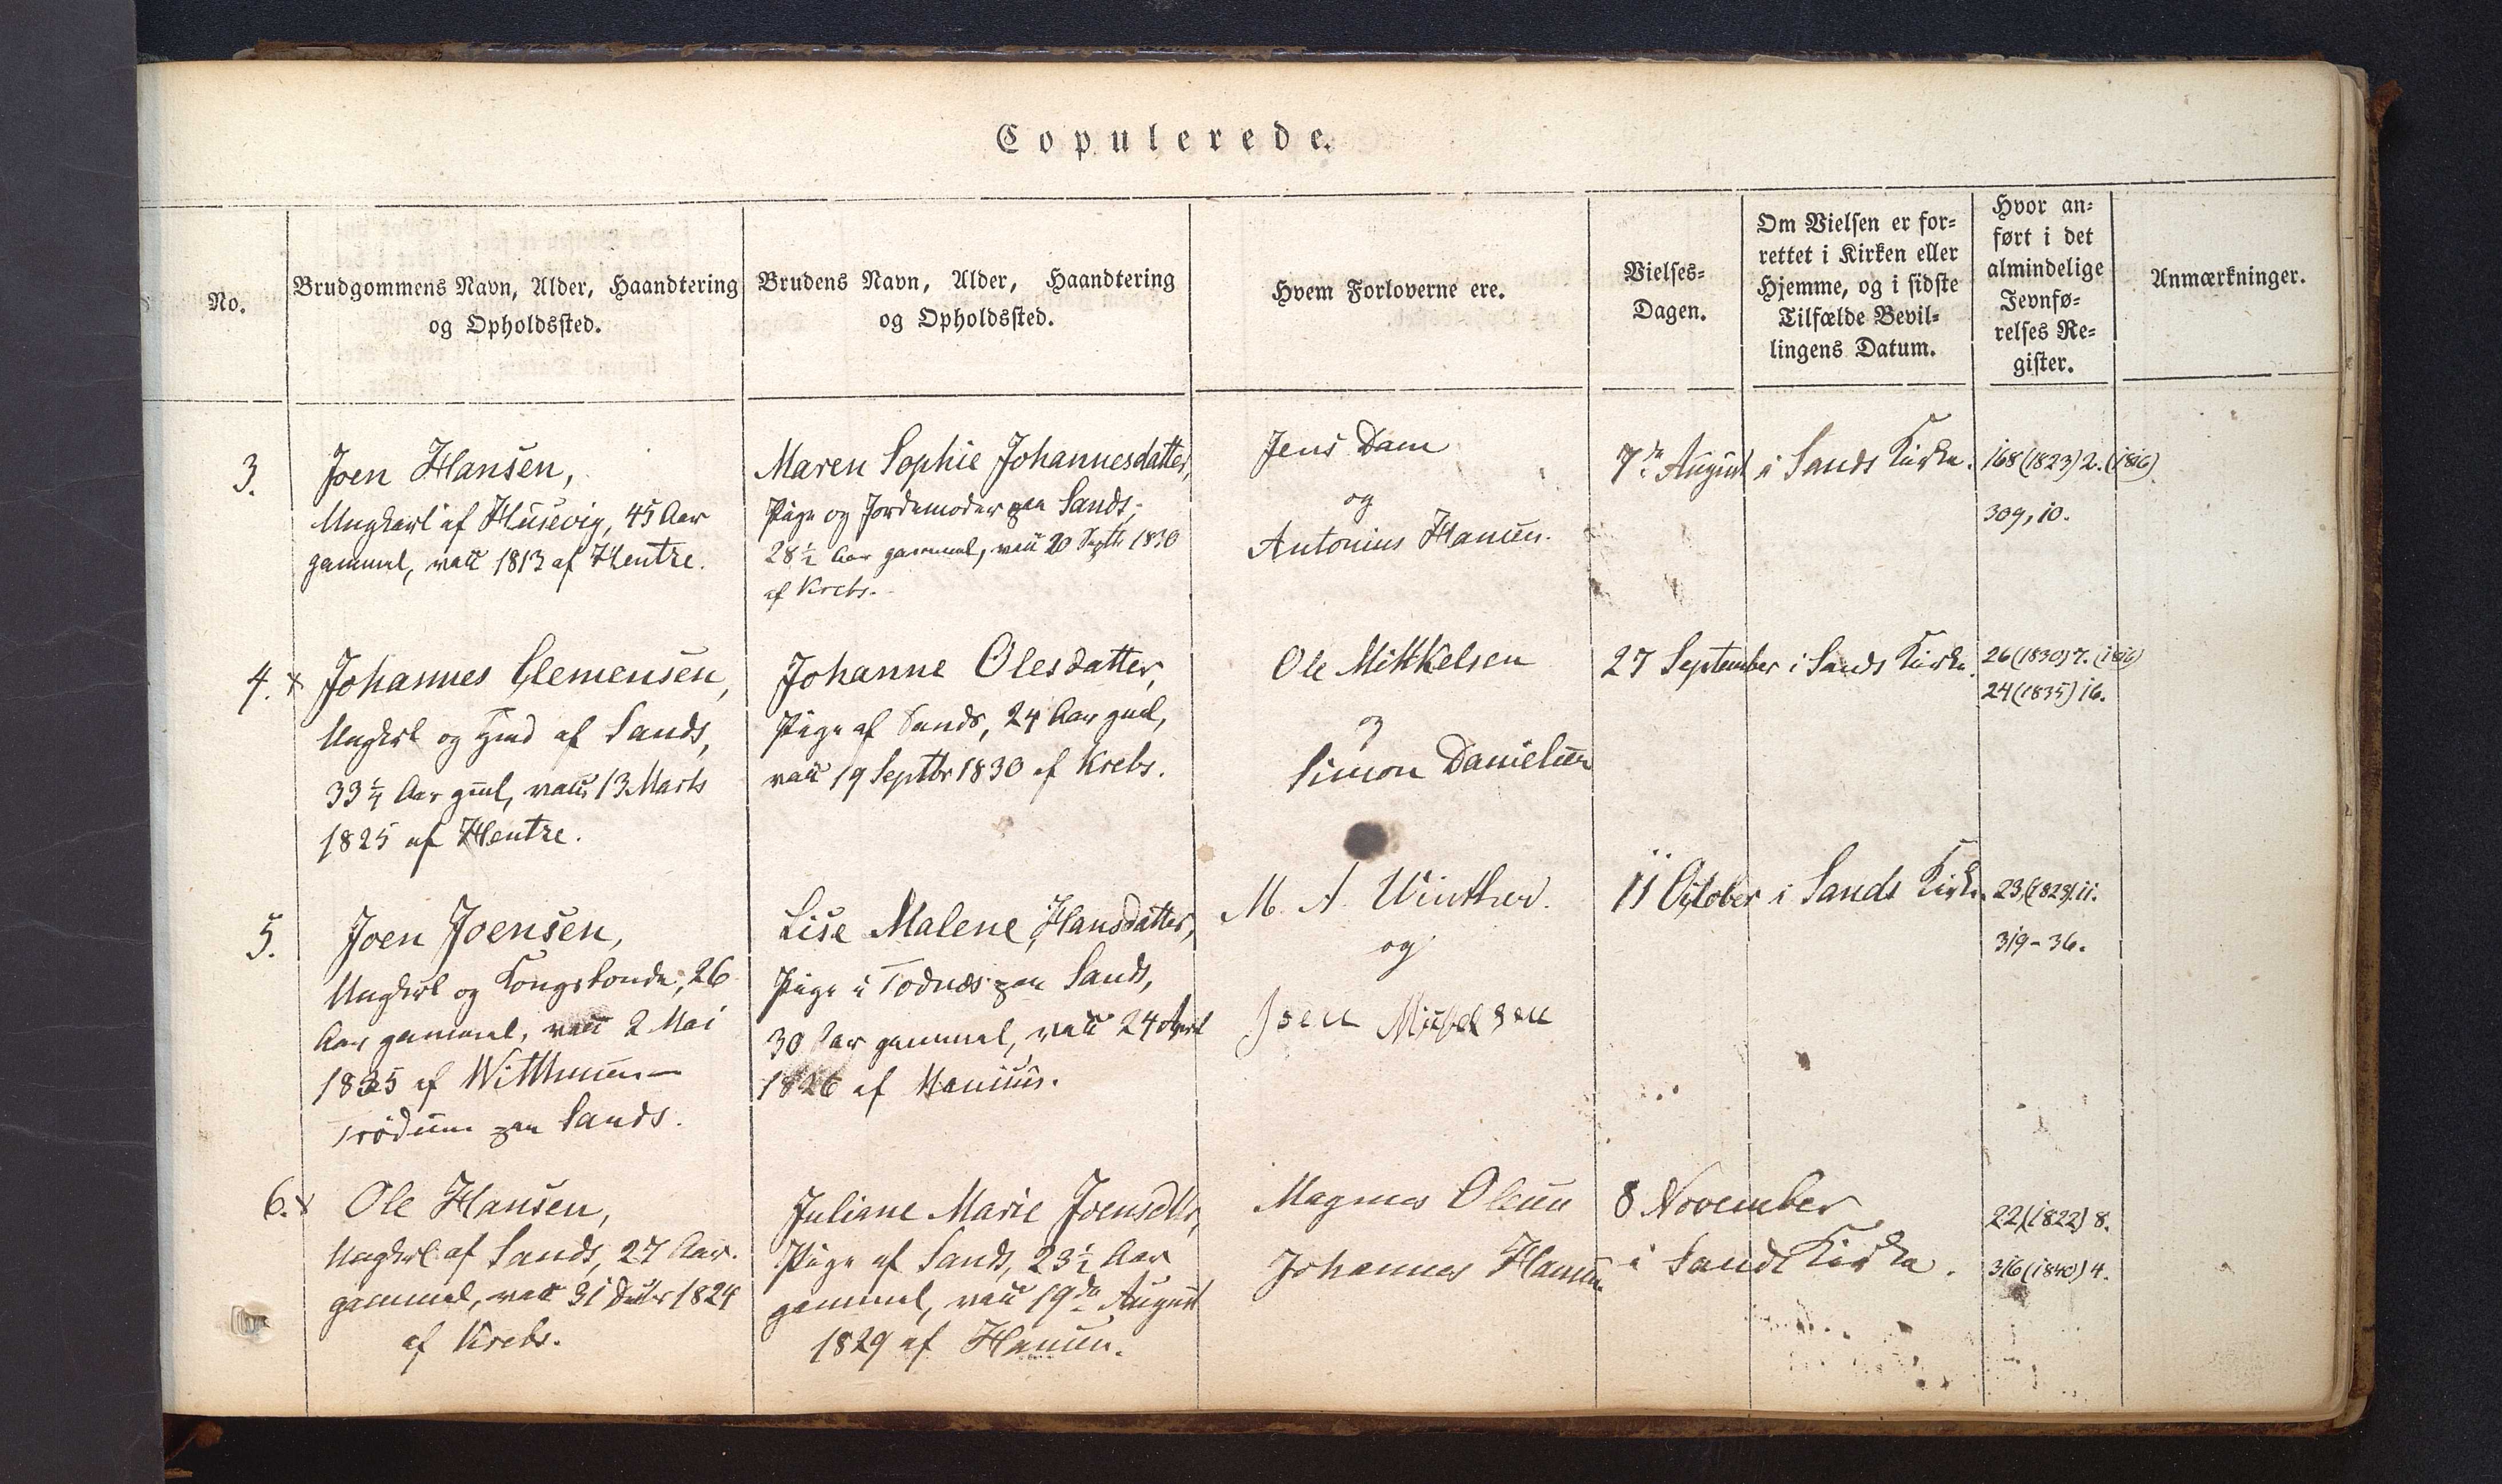 Copulerede.
No.
Brudgommens Navn, Alder, Haandtering
og Opholdssted.
Brudens Navn, Alder, Haandtering
og Opholdssted.
Hvem Forloverne ere.
Vielses-
Dagen.
Om Vielsen er for-
rettet i Kirken eller
Hjemme, og i sidste
Tilfælde Bevil-
lingens Datum.
Hvor an-
ført i det
almindelige
Jevnfø-
relses Re-
gister.
Anmærkninger.
3.
Joen Hansen,
Ungkarl af Húsevig, 45 Aar
gammel, vacc 1813 af Hentze.
Maren Sophie Johannesdatter,
Pige og Jordemoder paa Sands,
28½ Aar gammel, vacc 20 Septbr 1830
af Krebs.
Jens Dam
og
Antonius Hansen.
7de August
i Sands Kirke.
168 (1823) 2. (1816)
309, 10.
4. x
Johannes Clemensen,
Ungkrl og af Sands,
33¼ Aar gml, vacc 13 Marts
1825 af Hentze.
Johanne Olesdatter,
Pige af Sands, 24 Aar gml,
vacc 19 Septbr 1830 af Krebs.
Ole Mikkelsen
og
Simon Danielsen
27 September
i Sands Kirke.
26 (1830) 7. (1816)
24 (1835) 16.
5.
Joen Joensen,
Ungkrl og Kongsbonde, 26
Aar gammel, vacc 2 Mai
1835 af
Trödum paa Sands.
Lise Malene Hansdatter,
Pige i Todnæs paa Sands,
30 Aar gammel, vacc 24 April
1826 af
M. A. Winther.
og
Joen
11 October
i Sands Kirke.
23, (1823) 11.
319-36.
6. x
Ole Hansen,
Ungkrl af Sands, 27 Aar
gammel, vacc 31 Decbr 1824
af Krebs.
Juliane Marie Joensdtr,
Pige af Sands, 23½ Aar
gammel, vacc 19de August
1829 af Hansen.
Magnus Olesen
Johannes Hansen
8 November
i Sands Kirke.
22, (1822) 8.
316 (1840) 4.